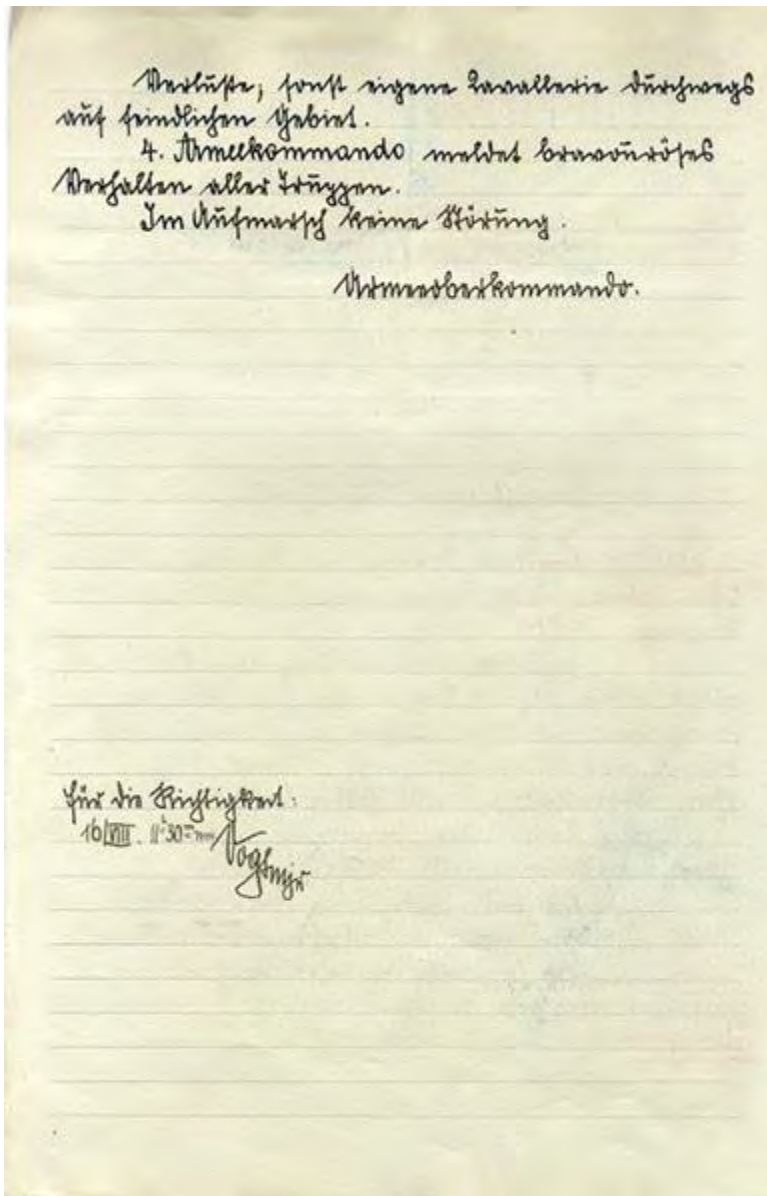 Verluste, sonst eigene Kavallerie durchwegs
auf feindlichen Gebiet.
4. Armeekommando meldet bravouröses
Verhalten aller Truppen.
Im Aufmarsch keine Störung.
Armeeoberkommando.
Für die Richtigkeit:
16/VIII. 11h 30